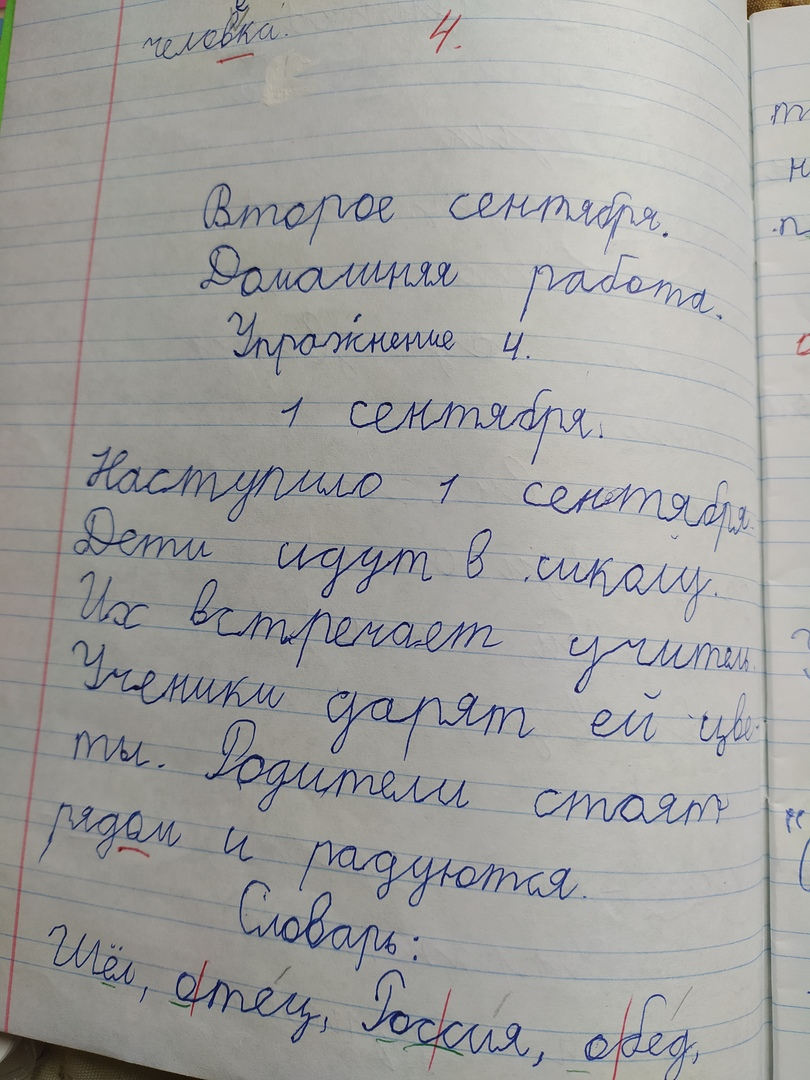 человека.
4.
Второе сентября.
Домашняя работа.
Упражнение 4.
1 сентября.
Наступило 1 сентября.
Дети идут в школу.
Их встречает учитель.
Ученики дарят ей цве-
ты. Родители стоят
рядом и радуются.
Словарь:
Шёл, отец, Россия, обед,